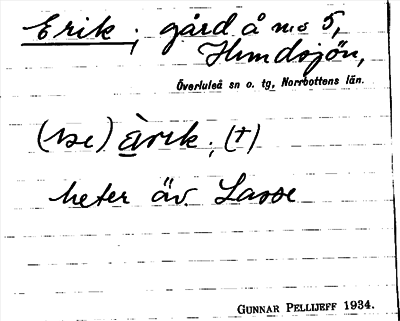 Erik, gård å n:o 5,
Hundsjön,
Överluleå sn o. tg, Norrbottens län.
(se) ærik, (†)
heter äv. Lasse
GUNNAR PELLIJEFF 1934.